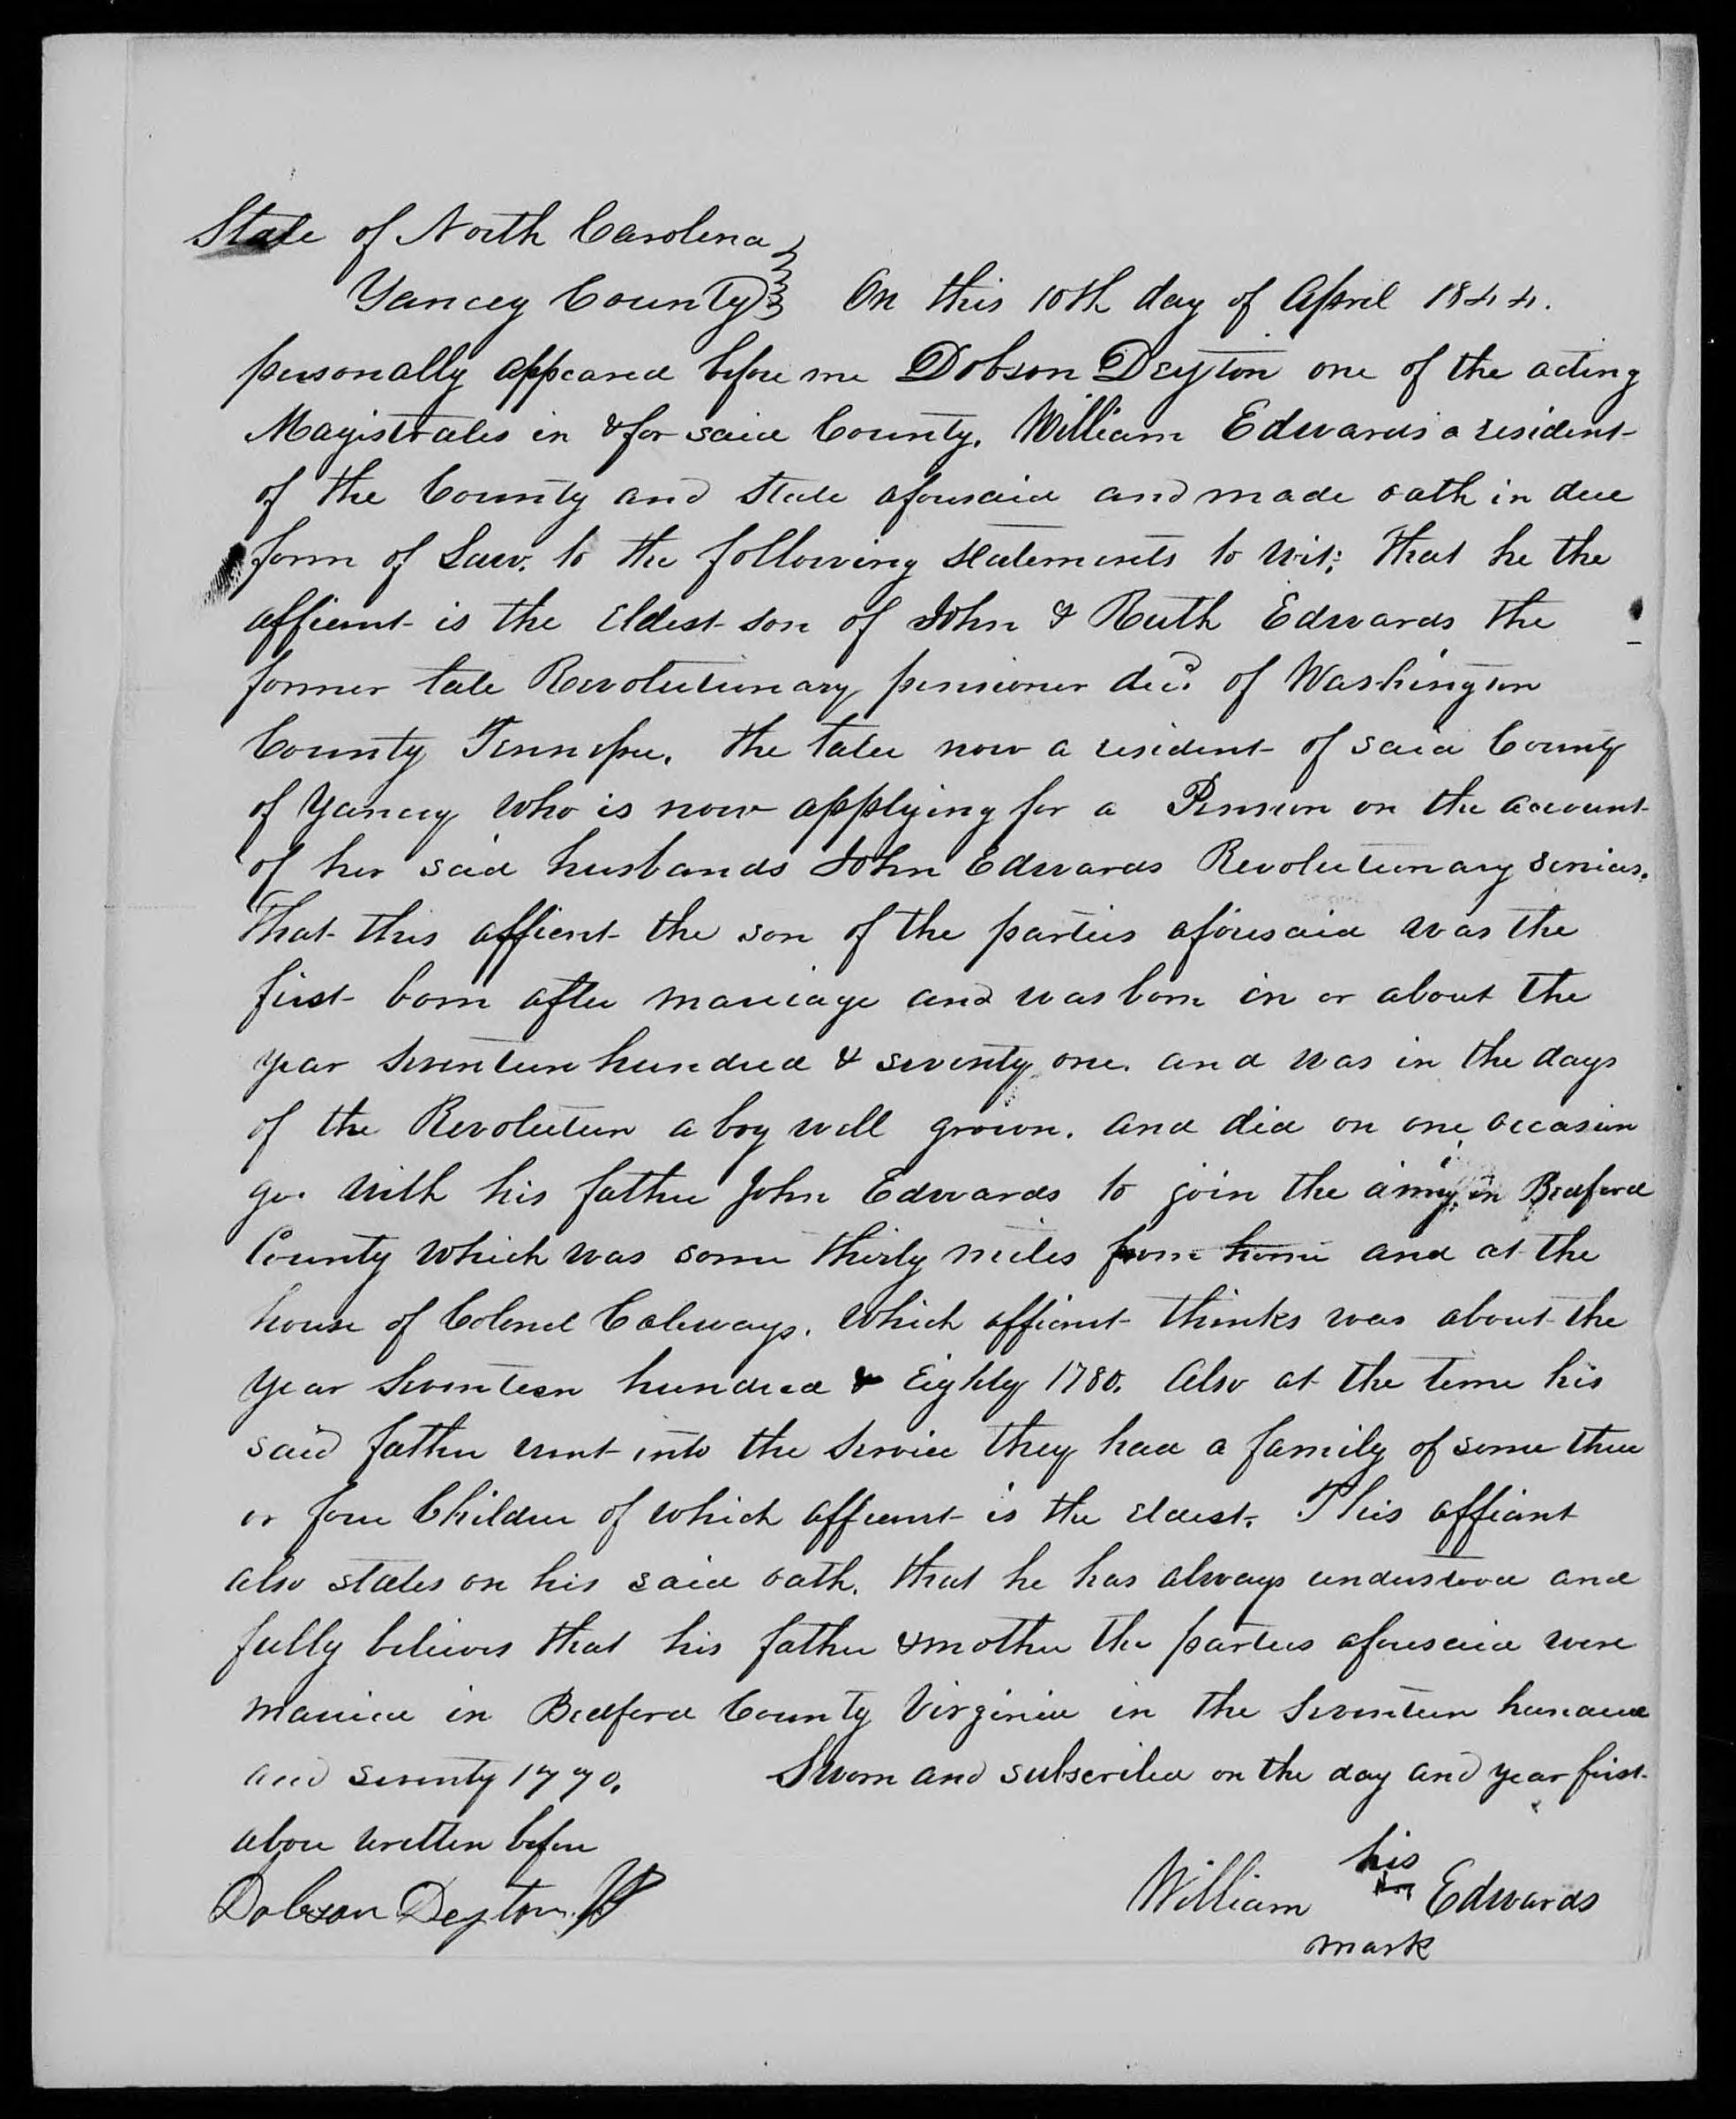 State of North Carolina
Yancey County On this 10th day of April 1844.
personally appeared before me Dobson Deyton one of the acting
Magistrates in & for said County. William Edwards a resident
of the County and State aforesaid and made oath in due
form of Law. to the following statements to wit; that he the
affiant is the eldest son of John & Ruth Edwards the
former late Revolutionary pensioner decd. of Washington
County Tennessee. the later now a resident of said County
of Yancey who is now applying for a Pension on the account
of her said husbands John Edwards Revolutionary services.
That this affient the son of the parties aforesaid was the
first born after marriage and was born in or about the
year seventeen hundred & seventy one. and was in the days
of the Revolution a boy well grown. and did on one occasion
go. with his father John Edwards to join the army in Bedford
County which was some thirty miles from home and at the
house of Colonel Caleways. which affiant thinks was about the
year Seventeen hundred & Eighty 1780. Also at the time his
said father went into the service they had a family of some three
or four Children of which affiant is the eldest. This affiant
also states on his said oath. that he has always understood and
fully believes that his father & mother the parties aforesaid were
married in Bedford County Virginia in the Seventeen hundred
and seventy 1770. Sworn and subscribed on the day and year first
above written before
his
Dobson Deyton JP William Edwards
mark